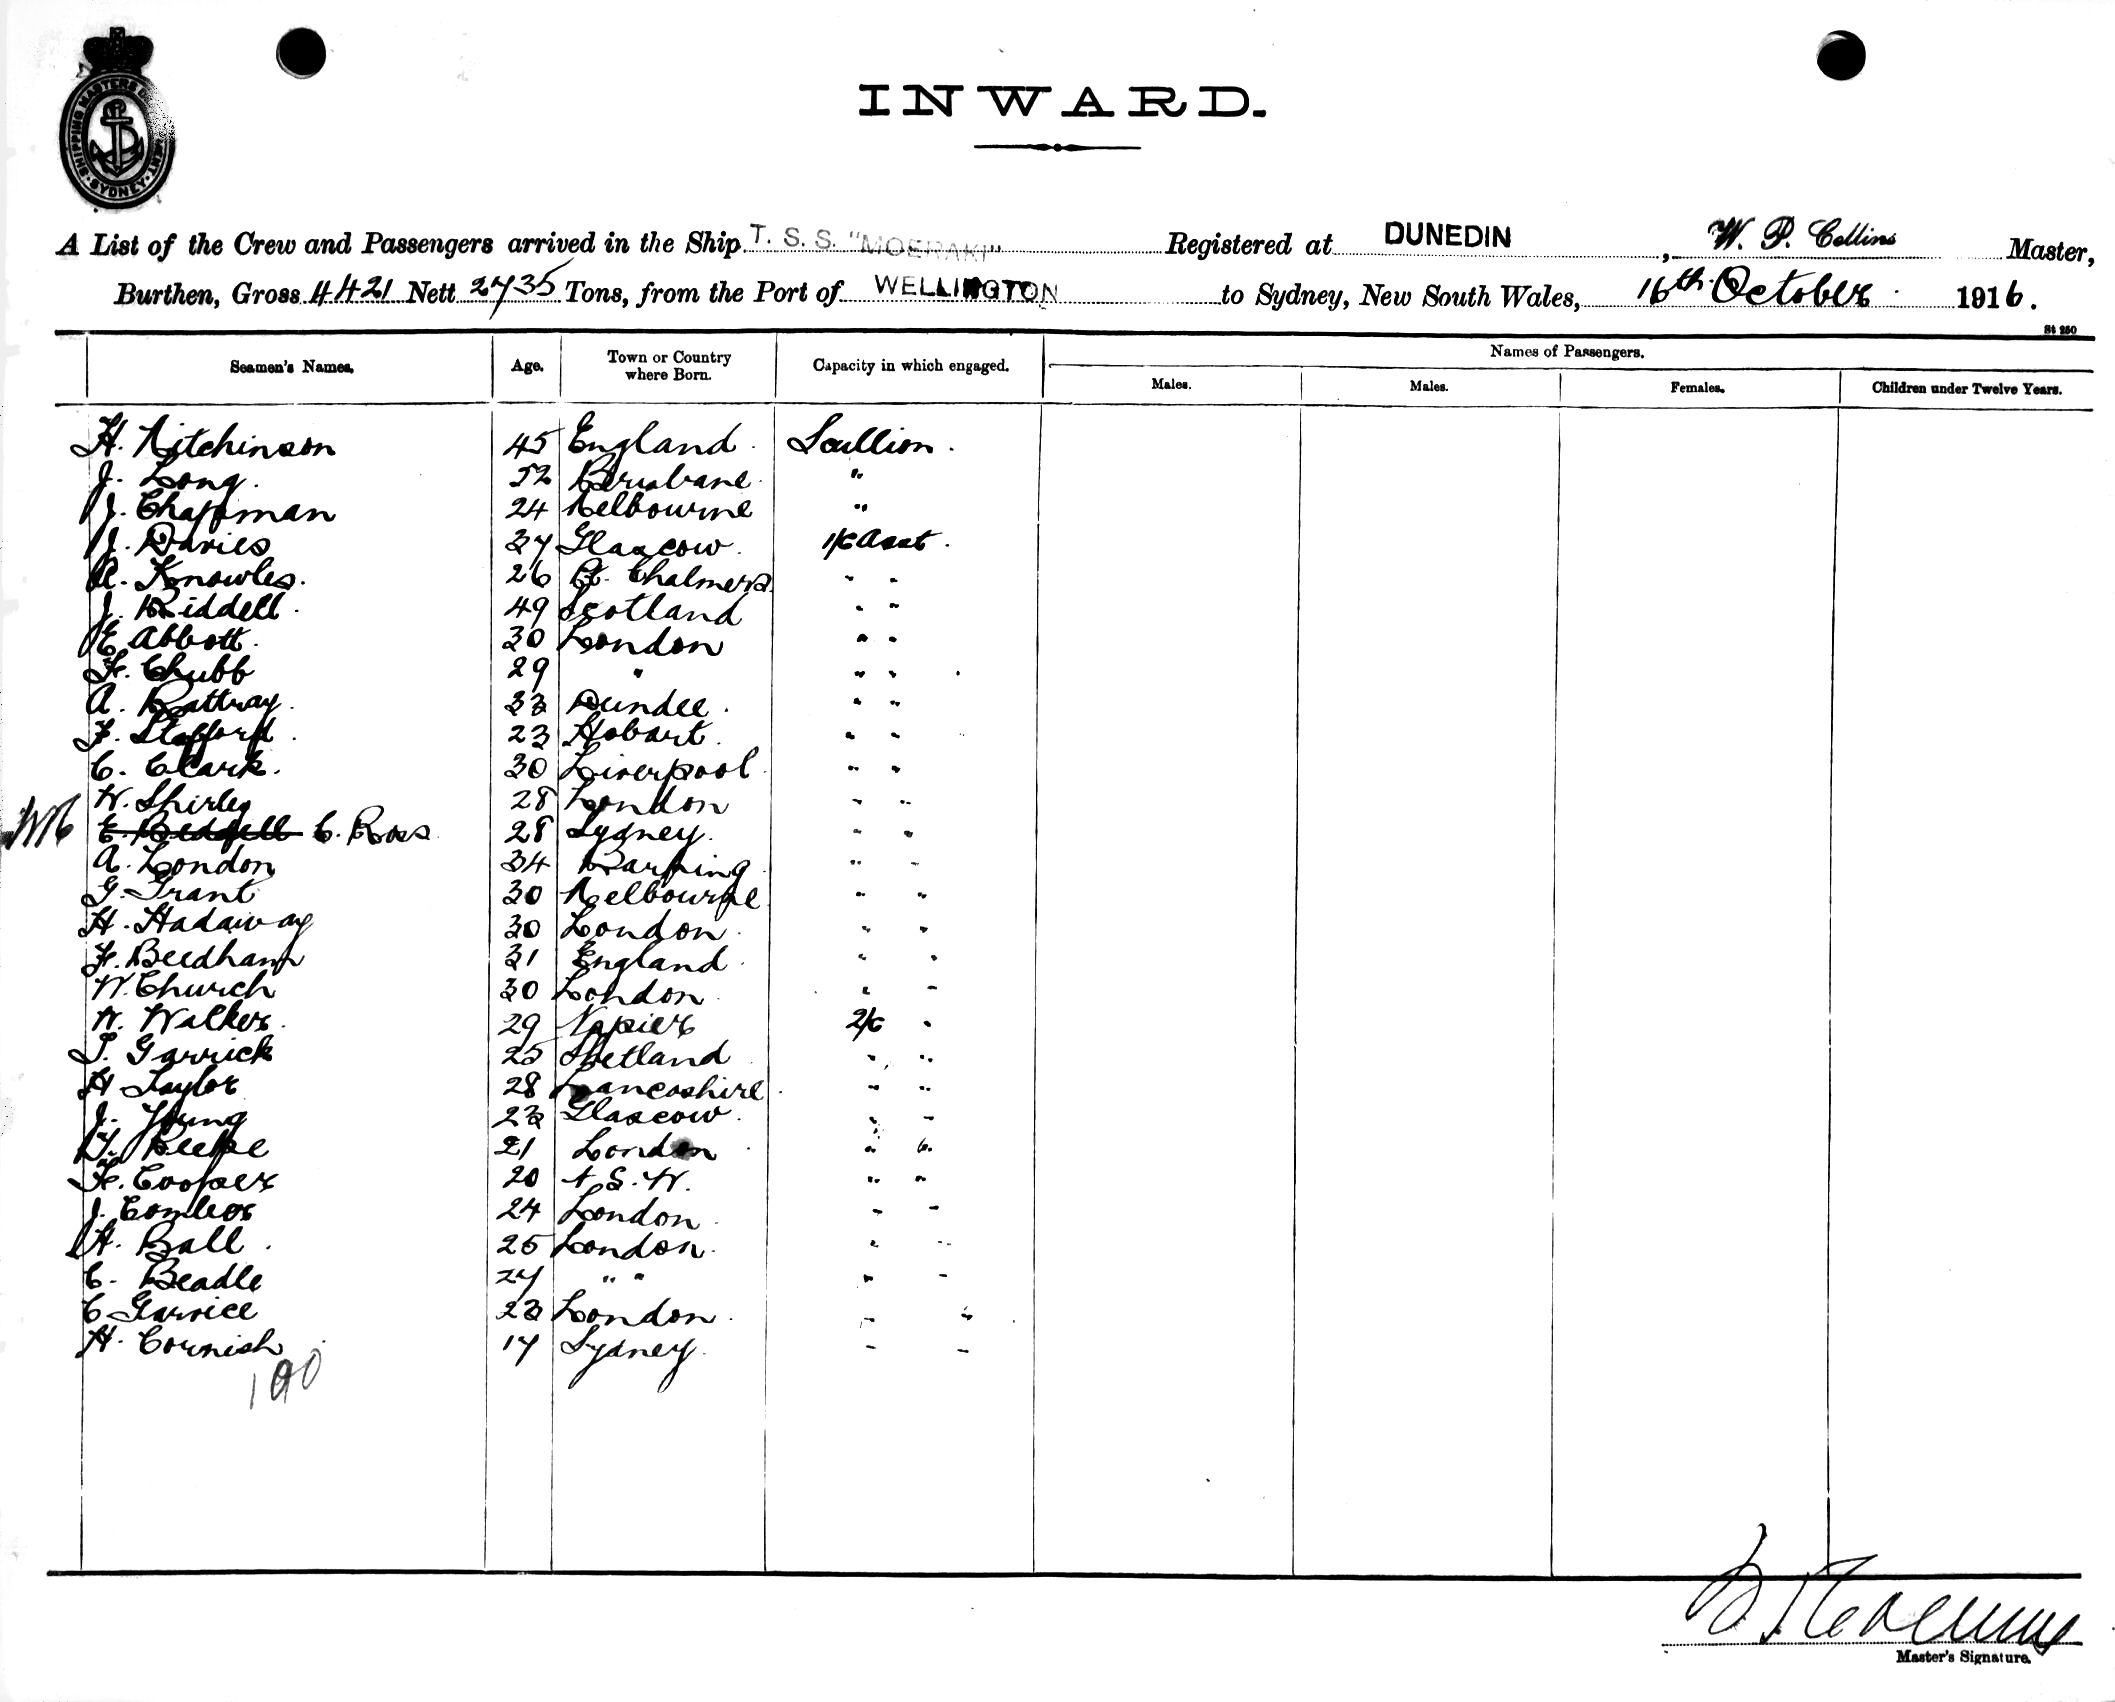 SHIPPING MASTERS DEPARTMENT SYDNEY
INWARD.
A List of the Crew and Passengers arrived in the Ship T. S. S. "MOERAKI" Registered at DUNEDIN, W. P. Collins Master,
Burthen, Gross 4421 Nett 2735 Tons, from the Port of WELLINGTON to Sydney, New South Wales, 16th October 1916.
St 250
Seamen's Names. Age. Town or Country where Born. Capacity in which engaged. Names of Passengers.
Males. Males. Females. Children under Twelve Years.
H. Aitchinson 45 England Scullion.
J. Long. 52 Brisbane "
J. Chapman 24 Melbourne "
J. Davies 37 Glascow 1/C Asst.
A. Knowles. 26 Pt. Chalmers " "
J. Riddell 49 Scotland " "
E Abbott. 30 London " "
F. Chubb 29 " " "
A. Rattray 33 Dundee " "
F. Stafford 23 Hobart " "
C. Clark. 30 Liverpool " "
W. Shirley 28 London " "
E. Bedgell C. Ross 28 Sydney. " "
A. London 34 Barking " "
G. Grant 30 Melbourne " "
H. Hadaway 30 London " "
F. Beedham 31 England " "
W. Church 30 London " "
W. Walker 29 Napier 2/C "
T. Garrick 25 Shetland " "
H Taylor 28 Lancashire " "
J. Young 23 Glascow " "
21 London " "
F. Cooper 20 N. S. W. " "
J. 24 London " "
H. Ball 25 London " "
C. Beadle 27 " " " "
C 23 London " "
H. Cornish 17 Sydney " "
190
Master's Signature.